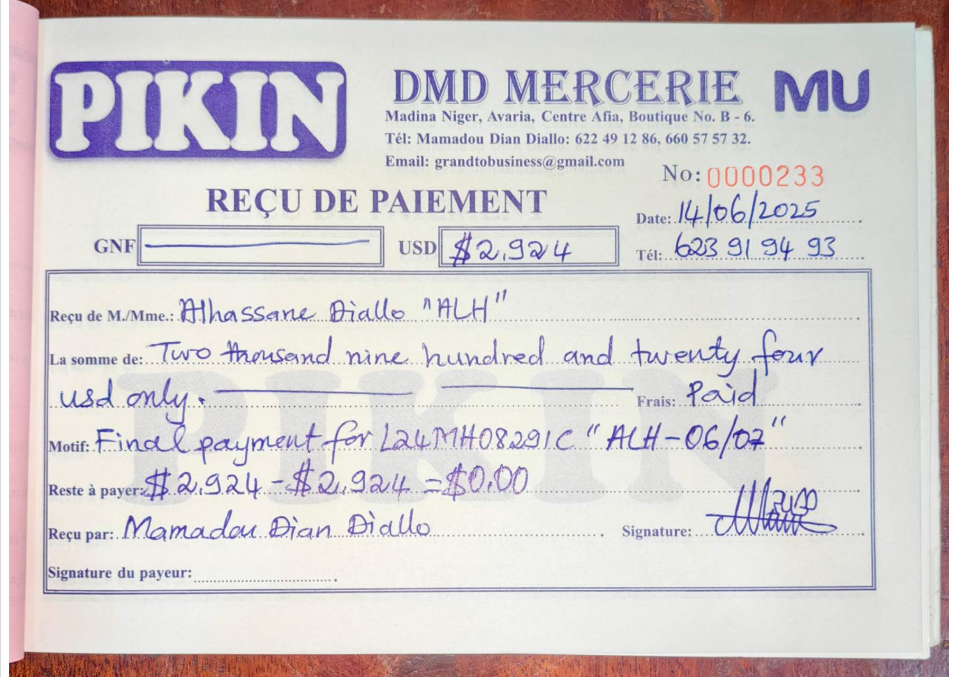 PIKIN
DMD MERCERIE
MU
Madina Niger, Avaria, Centre Afia, Boutique No. B - 6.
Tél: Mamadou Dian Diallo: 622 49 12 86, 660 57 57 32.
Email: grandtobusiness@gmail.com
No: 0000233
REÇU DE PAIEMENT
Date: 14/06/2025
GNF USD $2,924
Tél: 623 91 94 93
Reçu de M./Mme.: Alhassane Diallo "ALH"
La somme de: Two thousand nine hundred and twenty four
usd only. Frais: Paid
Motif: Final payment for L24MH08291C "ALH-06/07"
Reste à payer: $2,924 - $2,924 = $0.00
Reçu par: Mamadou Dian Diallo Signature:
Signature du payeur:
PIKIN